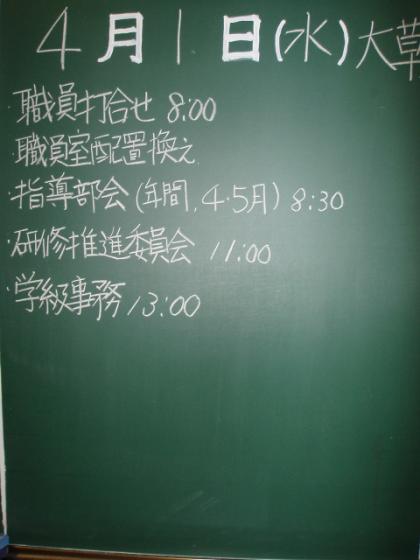 4月1日(水)大草
・職員打合せ 8:00
・職員室配置換え
・指導部会(年間,4・5月) 8:30
・研修推進委員会 11:00
・学級事務 13:00